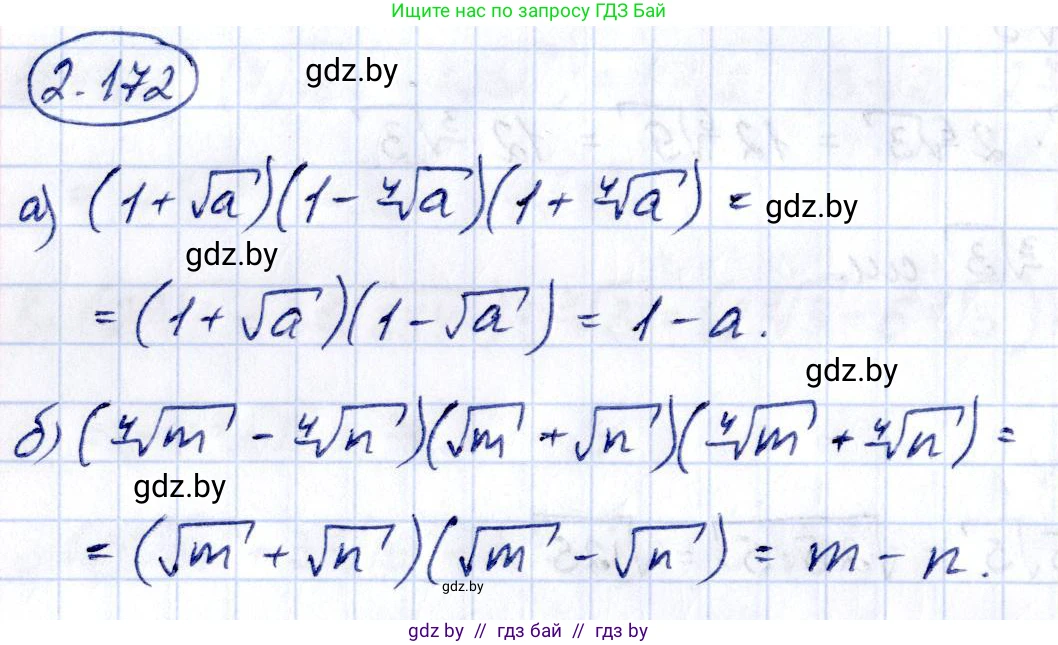 Ищите нас по запросу ГДЗ Бай
2.172
gdz.by
а) (1 + √a)(1 - ⁴√a)(1 + ⁴√a) = gdz.by
gdz.by
= (1 + √a)(1 - √a) = 1 - a.
gdz.by
б) (⁴√m - ⁴√n)(√m + √n)(⁴√m + ⁴√n) =
gdz.by
= (√m + √n)(√m - √n) = m - n.
gdz.by
gdz by // гдз бай // гдз by